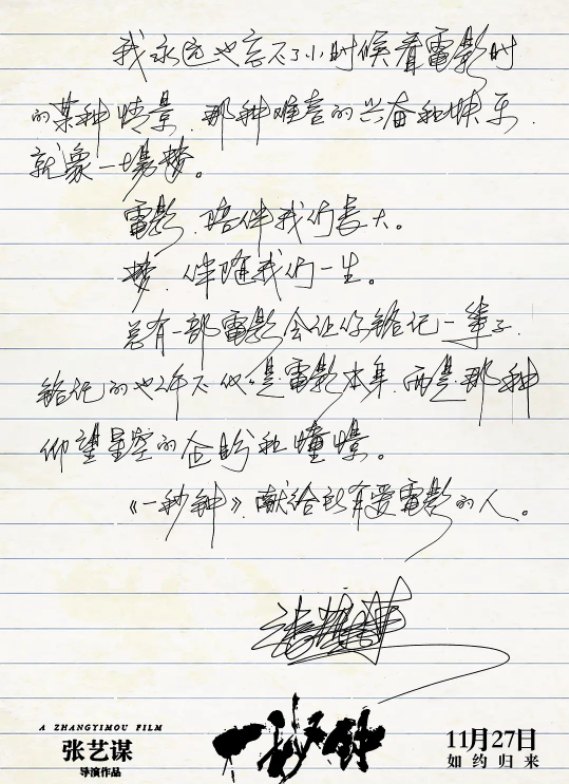 我永远也忘不了小时候看電影时
的某种情景,那种难言的兴奋和快乐,
就象一場梦。
電影,陪伴我们長大。
梦,伴随我们一生。
总有一部電影会让你铭记一辈子,
铭记的也许不仅僅是電影本身,而是那种
仰望星空的企盼和憧憬。
《一秒钟》,献给所有爱電影的人。
张艺谋
A ZHANGYIMOU FILM
张艺谋
导演作品
一秒钟
11月27日
如约归来